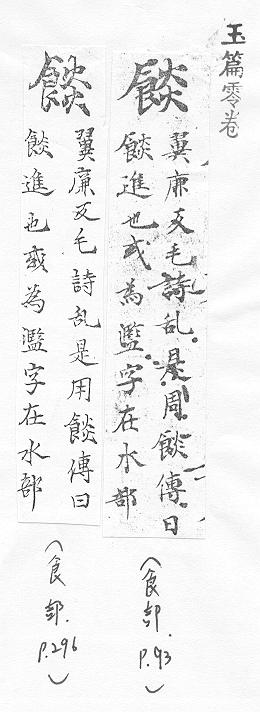 玉篇零卷
餤
翼廉反毛詩乱是周餤傳曰
餤進也或為濫字在水部
(食部. P.93)
餤
翼廉反毛詩乱是用餤傳曰
餤進也或為濫字在水部
(食部. P.296)